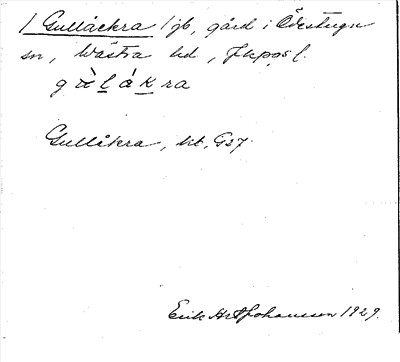 / Gullåckra / jb, gård i Ödestugu
sn, Västra hd, Jkpgs l.
g ù l å k ra
Gullåkra, kt. G27.
Erik Art Johansson 1929.